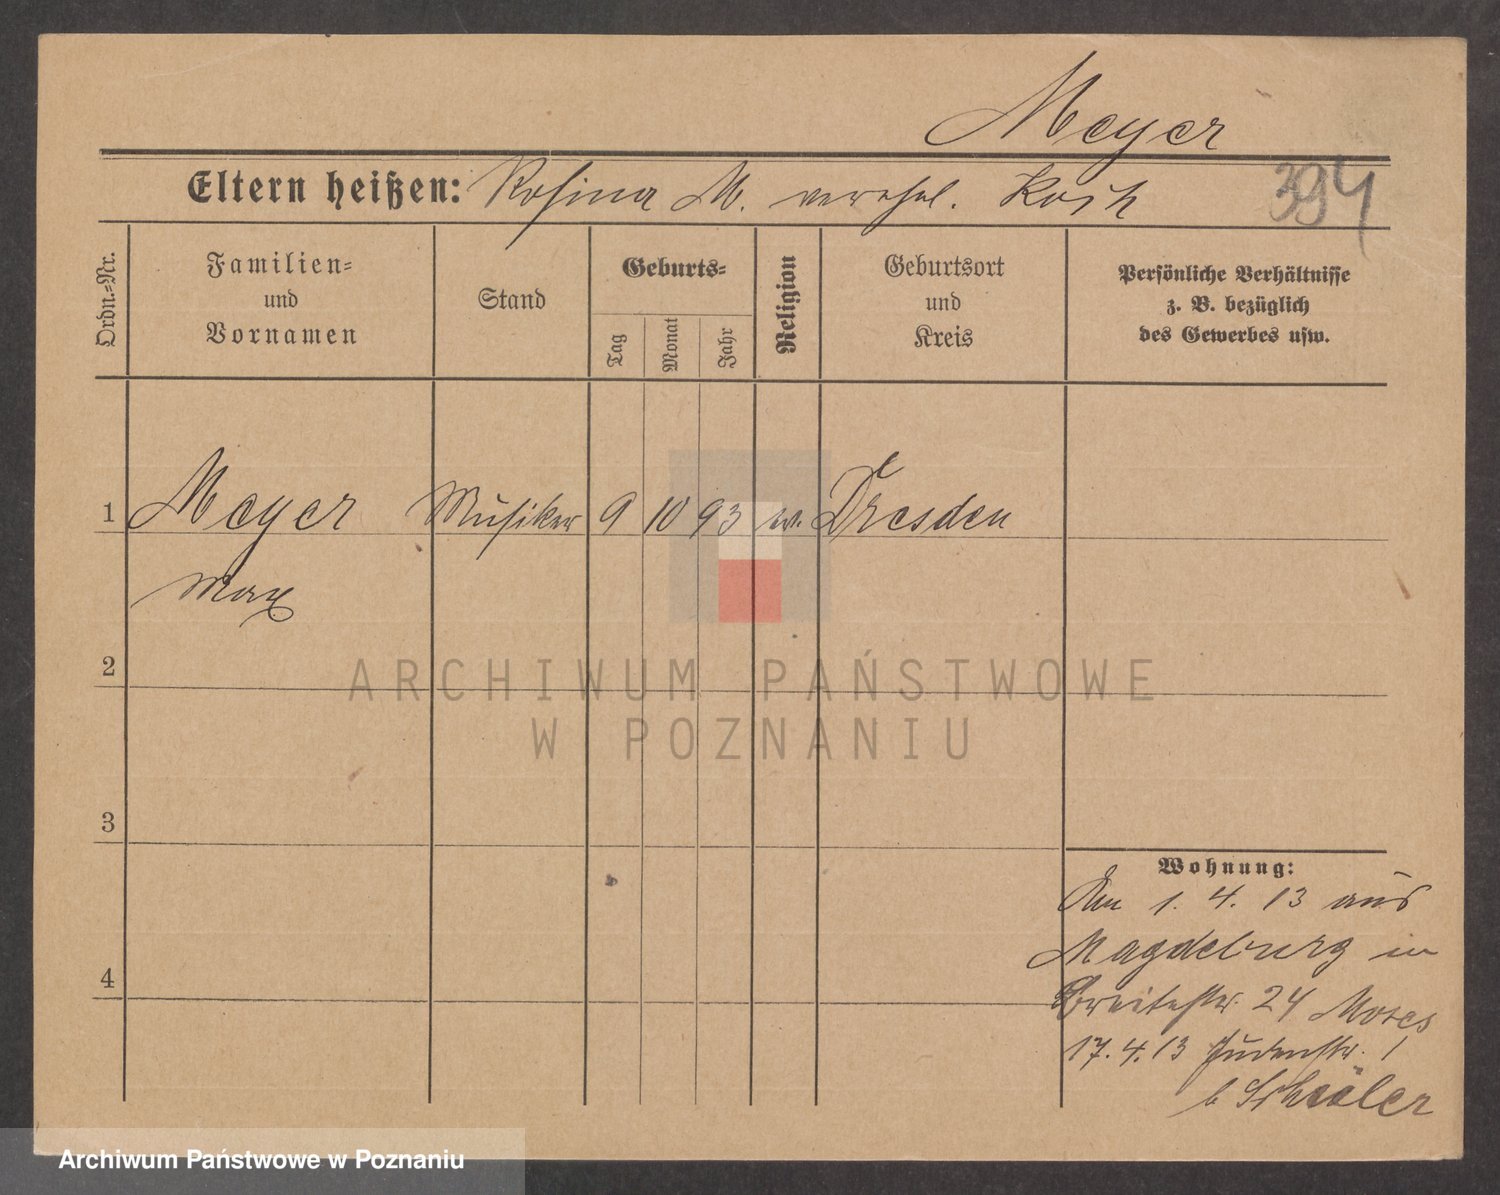 Meyer
Eltern heißen: Rosina M. verehel. Koch
394
Ordn.=Nr.
Familien=
und
Vornamen
Stand
Geburts=
Tag
Monat
Jahr
Religion
Geburtsort
und
Kreis
Persönliche Verhältnisse
z. B. bezüglich
des Gewerbes usw.
1 Meyer Musiker 9 10 93 Dresden
Max
2
3
4
Wohnung:
1. 4. 13 aus
Magdeburg in
Breitestr. 24 Moses
17. 4. 13 Judenstr. 1
b
ARCHIWUM PAŃSTWOWE
W POZNANIU
Archiwum Państwowe w Poznaniu